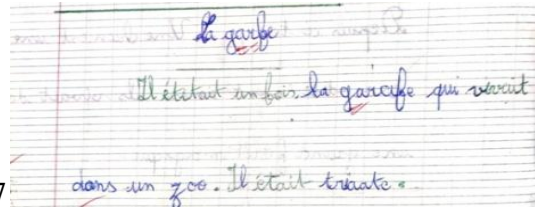 la garfe
Il ététait un fois la garcife qui vivait
dans un zoo. Il était triaate.
7